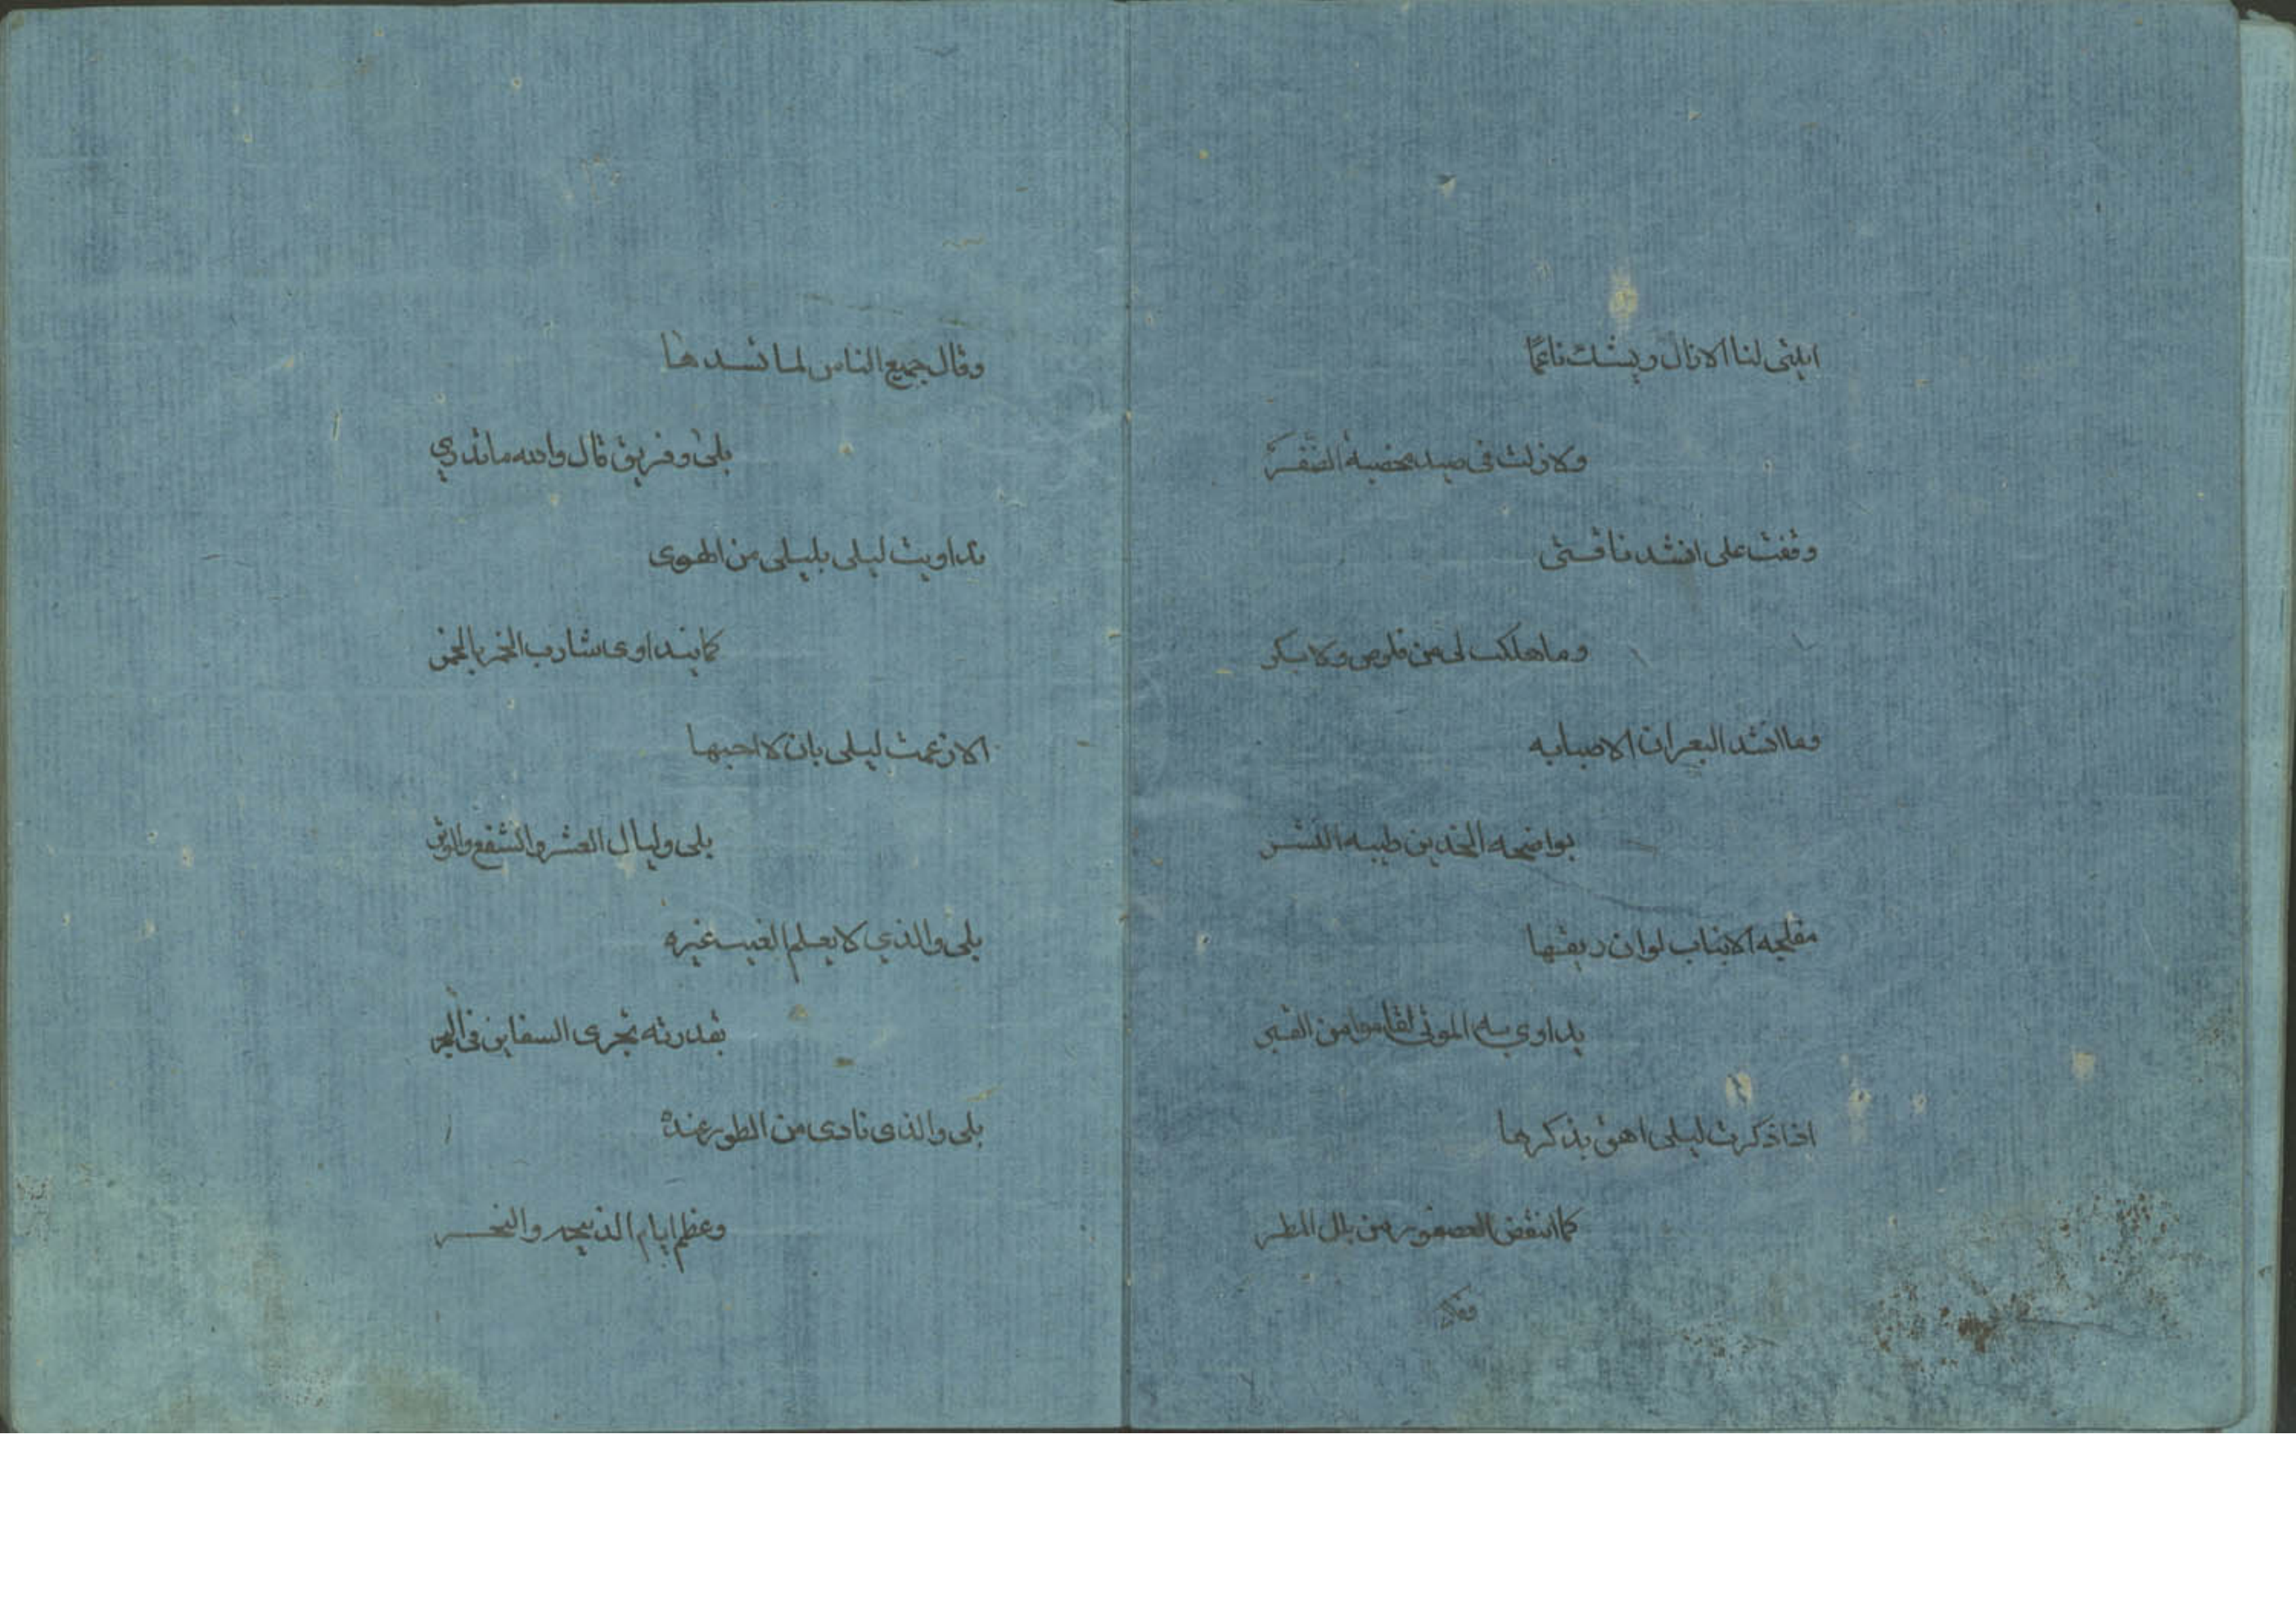 ابليتى لنا الازال وبيشك ناعما
ولازلت فى صيد مخضبة الضفر
وقفت على انشد ناقستى
وما هلكت لى من قلوص ولا بكر
وما انشد البعران الا صبابه
بواضحه الخدين طيبه النشر
مفلجه الانياب لو ان ريقها
يداوي به الموتى لقاموا من القبر
اذا ذكرت ليلى اهتن بذكرها
كما انتفض العصفور من بلل المطر
وقال
وقال جميع الناس لما نشدها
بلى وفريق قال والله ما ندري
تداويت ليلى بليلى من الهوى
كما يتداوى شارب الخمر بالخمر
الا زعمت ليلى بان لا احبها
بلى وليال العشر والشفع والوتر
بلى والذي لا يعلم الغيب غيره
بقدرته تجرى السفاين فى البحر
بلى والذى نادى من الطور عنده
وعظم ايام الذبيحه والنحر